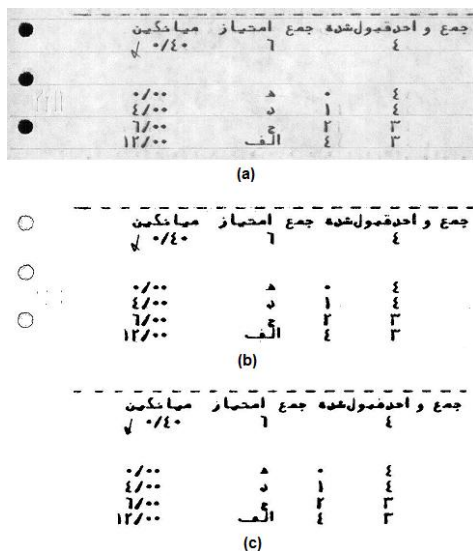 جمع و احدقبول‌شده جمع امتیاز میانگین
٤ ٦ ٠/٤٠
٤ ٠ ه ٠/٠٠
٤ ١ د ٤/٠٠
٣ ٢ ج ٦/٠٠
٣ ٤ الف ١٢/٠٠
(a)
جمع و احدقبول‌شده جمع امتیاز میانگین
٤ ٦ ٠/٤٠
٤ ٠ ه ٠/٠٠
٤ ١ د ٤/٠٠
٣ ٢ ج ٦/٠٠
٣ ٤ الف ١٢/٠٠
(b)
جمع و احدقبول‌شده جمع امتیاز میانگین
٤ ٦ ٠/٤٠
٤ ٠ ه ٠/٠٠
٤ ١ د ٤/٠٠
٣ ٢ ج ٦/٠٠
٣ ٤ الف ١٢/٠٠
(c)